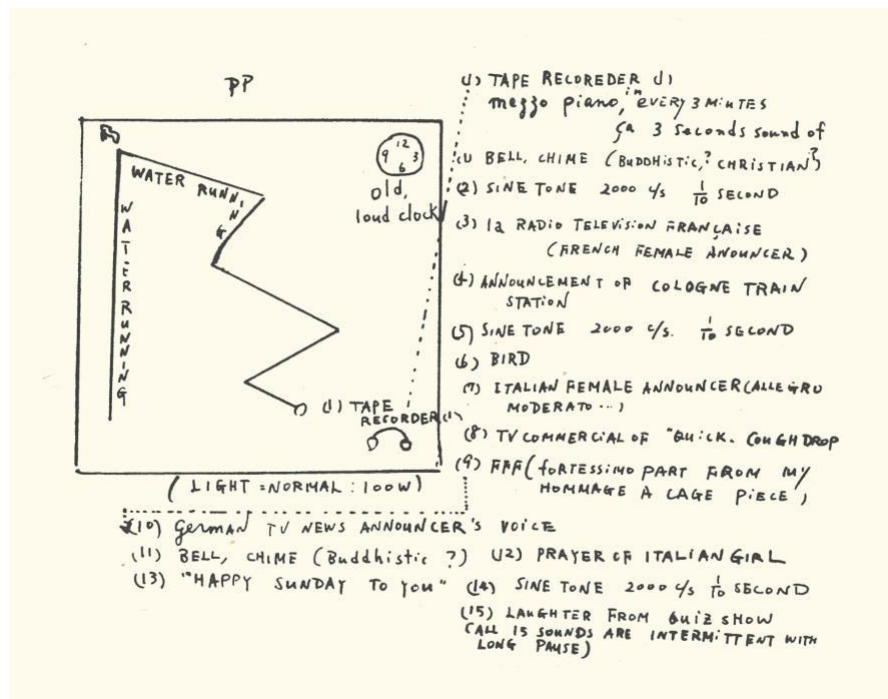 PP
WATER RUNNING
WATERRUNNING
12
9 3
6
old,
loud clock
(1) TAPE
RECORDER (1)
(LIGHT = NORMAL : 100W)
(1) TAPE RECOREDER (1)
mezzo piano, in EVERY 3 MiNUTES
ça 3 Seconds sound of
(1) BELL, CHIME (BUDDHISTIC,? CHRISTIAN?)
(2) SINE TONE 2000 c/s 1/10 SECOND
(3) la RADIO TELEVISION FRANÇAISE
(FRENCH FEMALE ANOUNCER)
(4) ANNOUNCEMENT OF COLOGNE TRAIN
STATION
(5) SINE TONE 2000 c/s. 1/10 SECOND
(6) BIRD
(7) ITALIAN FEMALE ANNOUNCER (ALLEGRO
MODERATO...)
(8) TV COMMERCIAL OF "QUICK. COUGH DROP
(9) FFF (fORTESSIMO PART FROM MY
HOMMAGE A CAGE PIECE)
(10) GERMAN TV NEWS ANNOUNCER'S VOICE
(11) BELL, CHIME (Buddhistic ?) (12) PRAYER OF ITALIAN GIRL
(13) "HAPPY SUNDAY TO YOU" (14) SINE TONE 2000 c/s 1/10 SECOND
(15) LAUGHTER FROM QUIZ SHOW
(ALL 15 SOUNDS ARE INTERMITTENT WITH
LONG PAUSE)